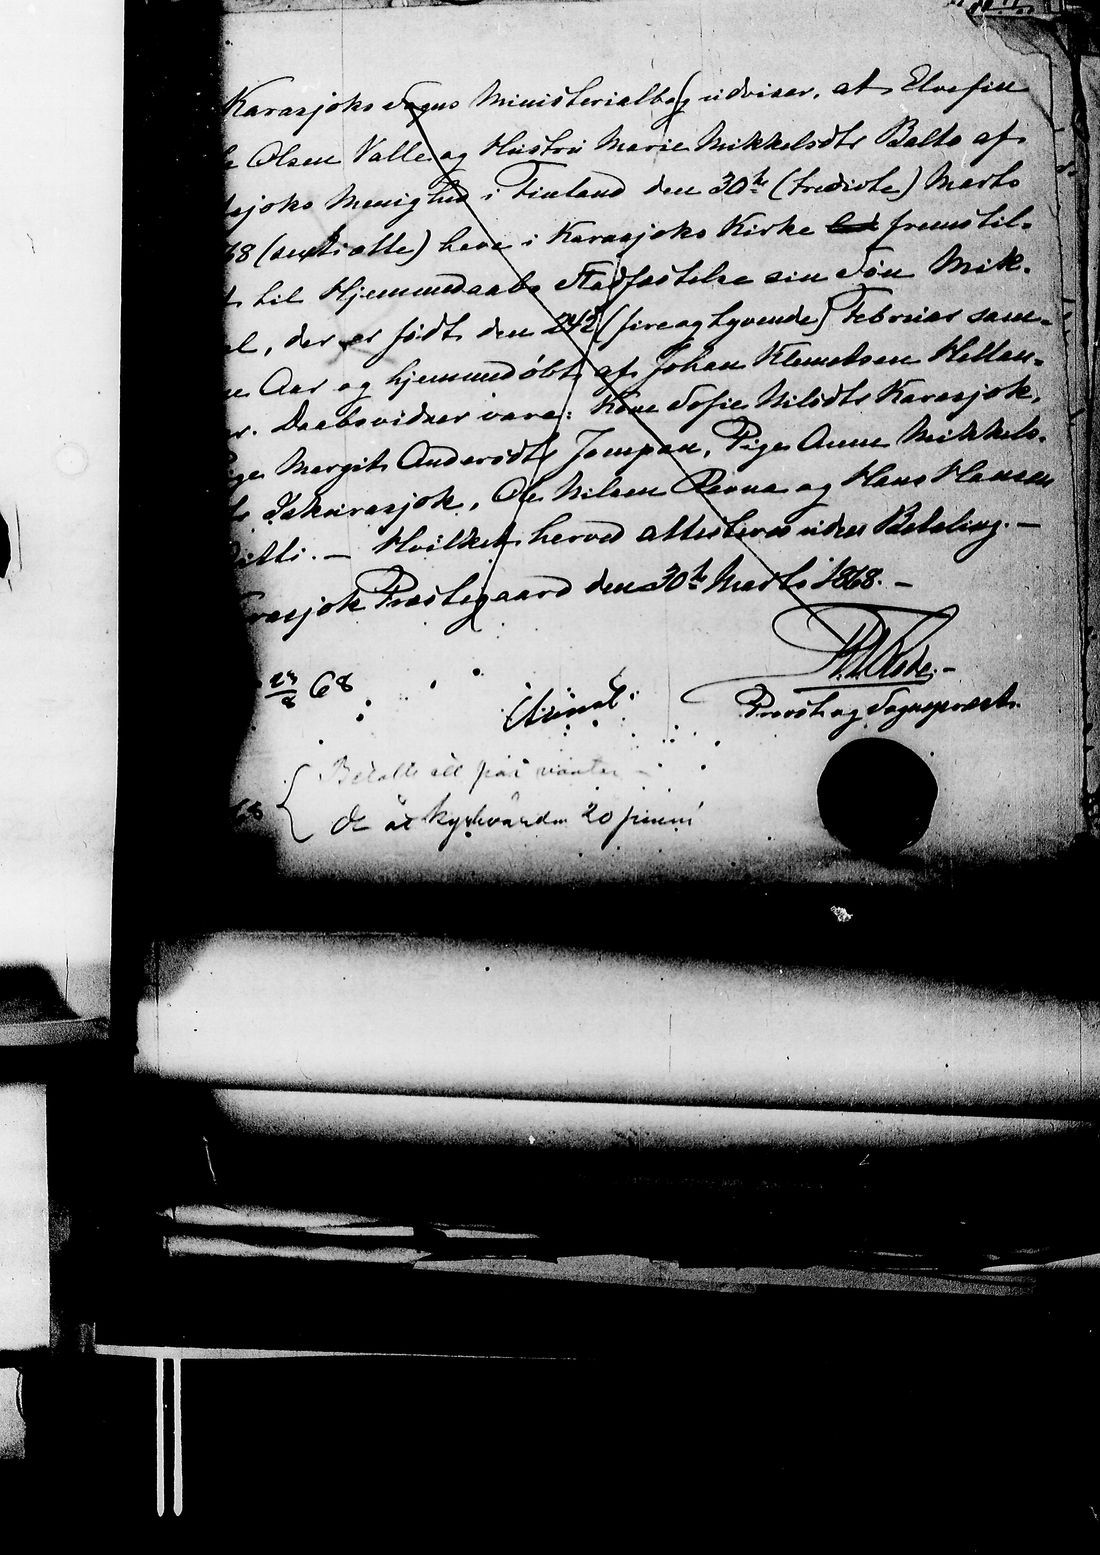 Karasjoks Sogns Ministerialbog udviser, at Elvefin
Olsen Valle og Hustru Marie Mikkelsdtr Balto af
sjoks Menighed i Finland den 30te (tredivte) Marts
68 (sexti otte) have i Karasjoks Kirke fremstil-
t til Hjemmedaabs Stadfæstelse sin Søn Mik-
el, der er født den 24de (fireogtyvende) Februar sam-
me Aar og hjemmedøbt af Johan Klemetsen Hellan-
er. Daabsvidner vare: Kone Sofie Nilsdtr Karasjok,
Pige Margit Andersdtr Jompan, Pige Anne Mikkels-
dtr Iskurasjok, Ole Nilsen Ravna og Hans Hansen
itti. — Hvilket herved attesteres uden Betaling. —
arasjok Præstegaard den 30te Marts 1868. —
68
Provst og Sognepræst.
Betalte
20 penni